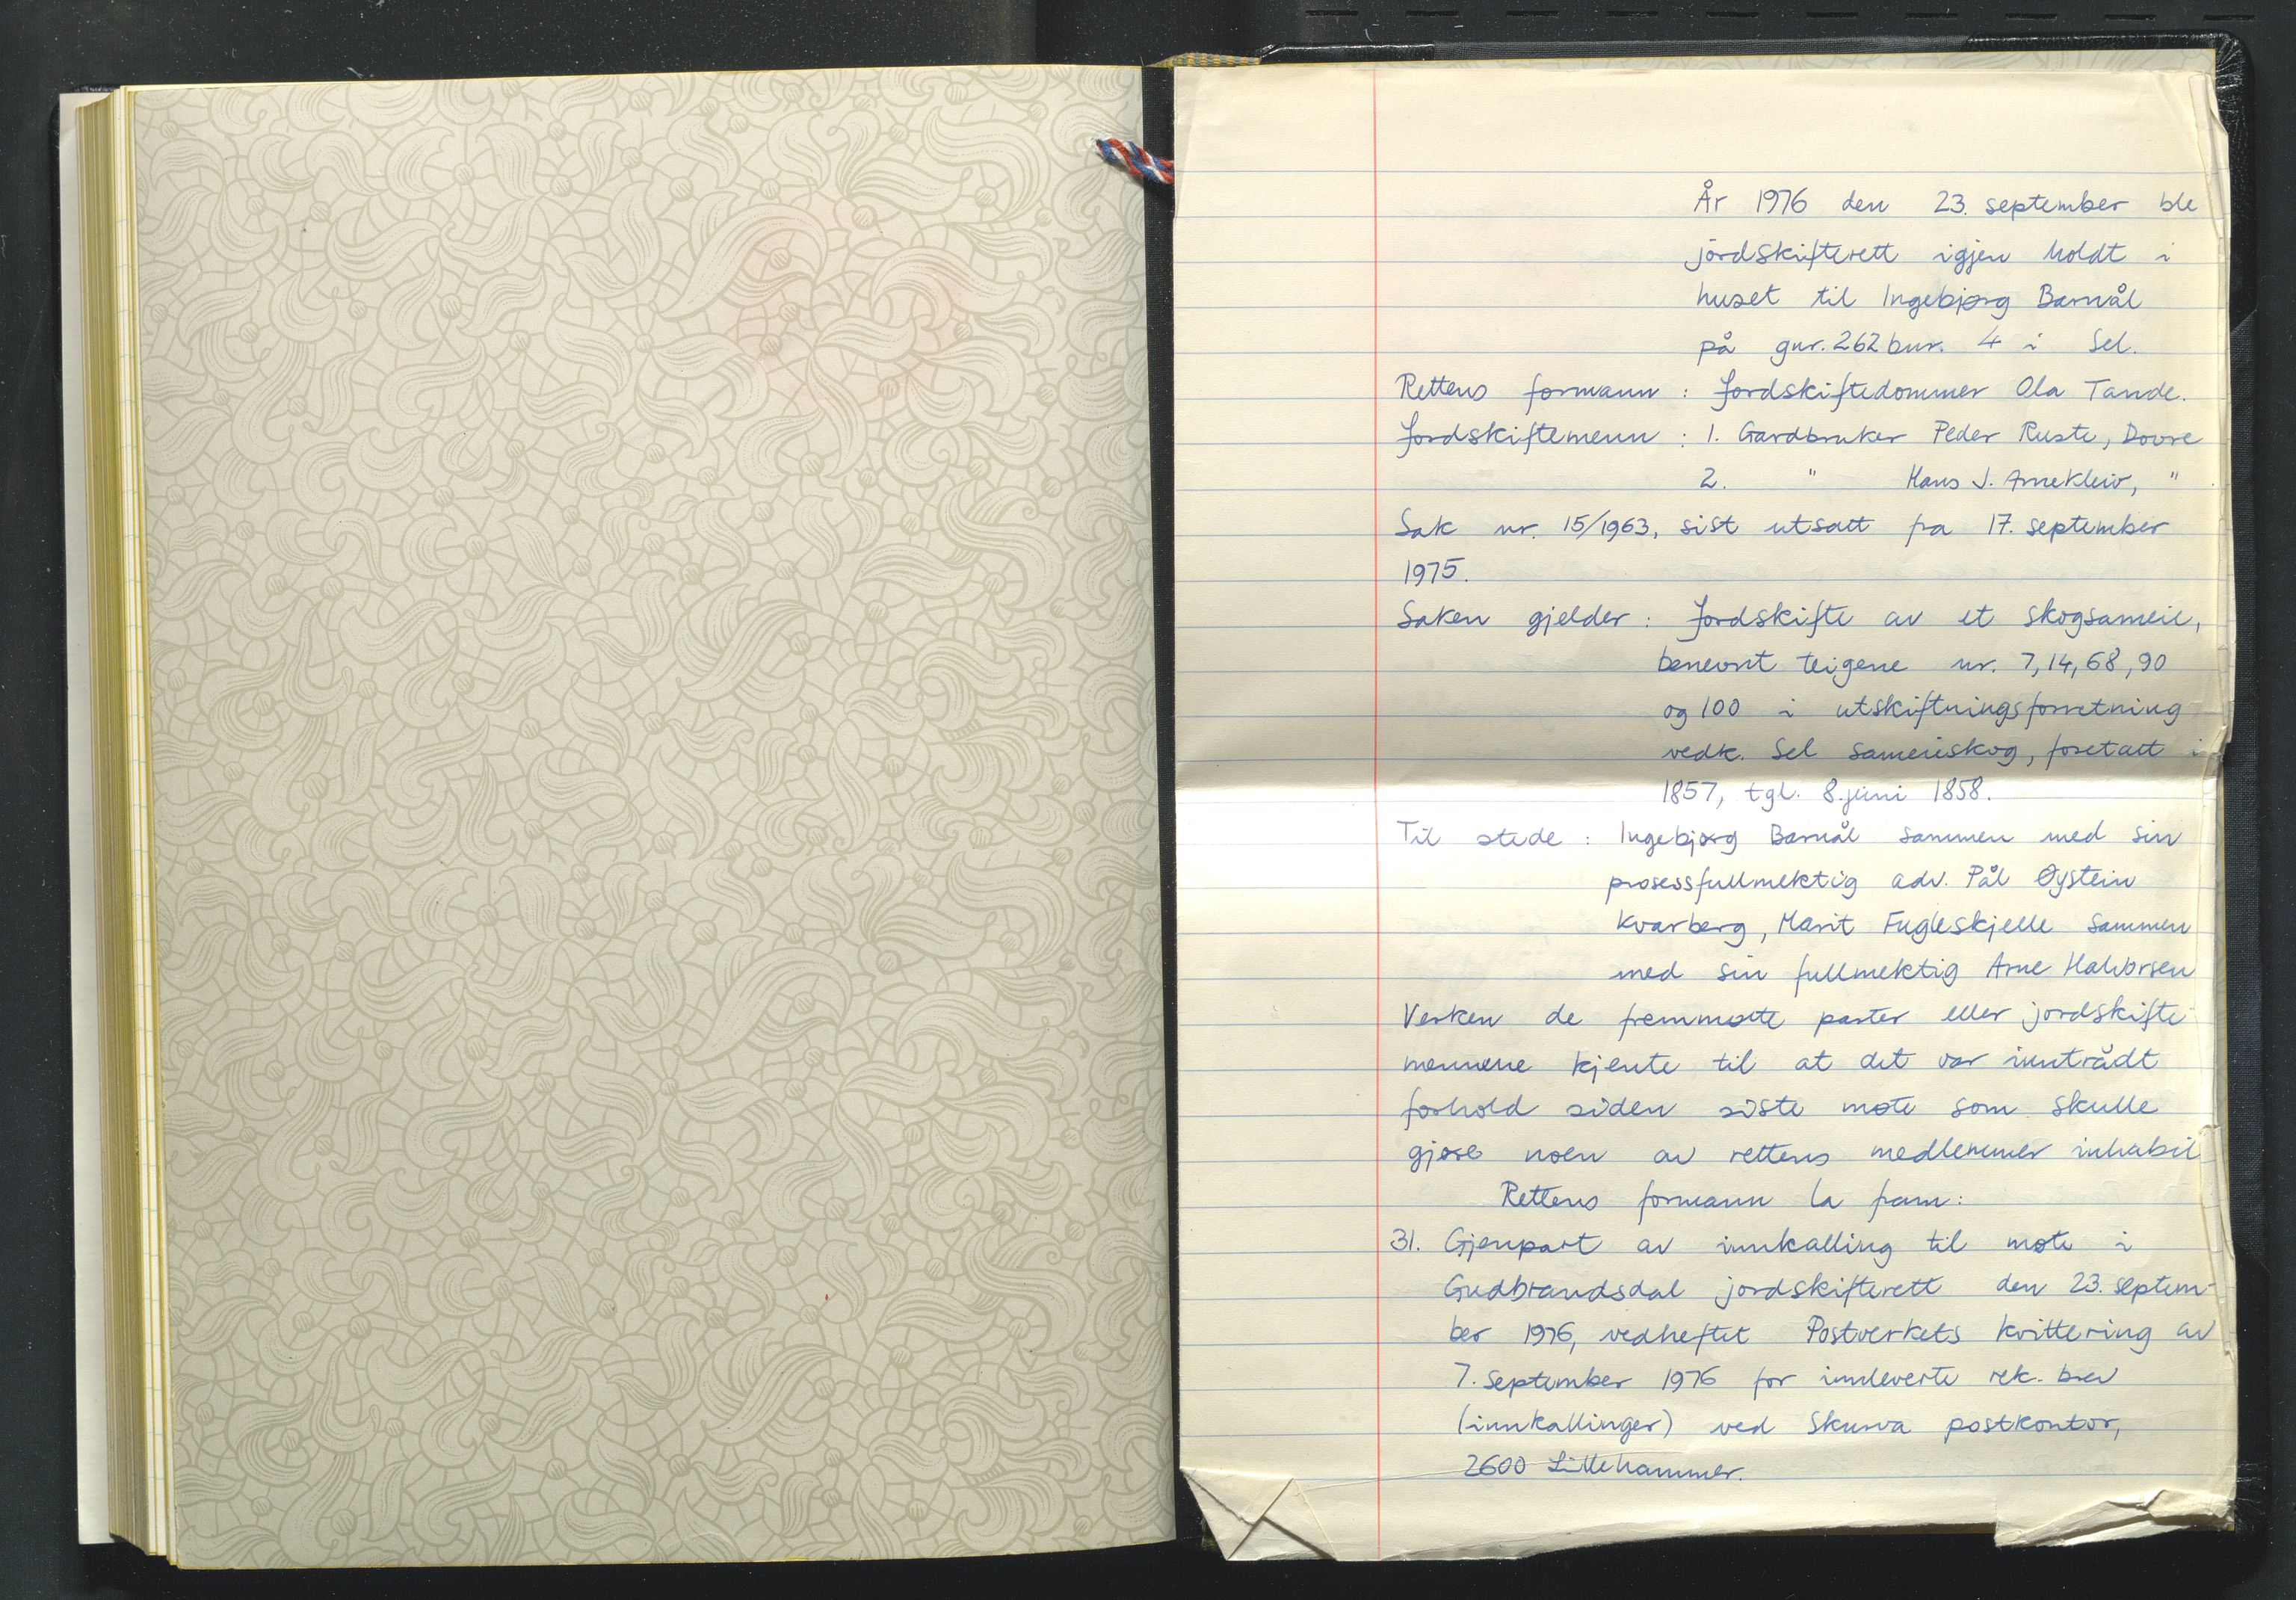 År 1976 den 23. september ble
jordskifterett igjen holdt i
huset til Ingebjørg Barnål
på gnr. 262 bnr. 4 i Sel.
Rettens formann : Jordskiftedommer Ola Tande.
Jordskiftemenn : 1. Gardbruker Peder Ruste, Dovre
2. " Hans J. Arnekleiv, "
Sak nr. 15/1963, sist utsatt fra 17. september
1975.
Saken gjelder : Jordskifte av et skogsameie,
benevnt teigene nr. 7, 14, 68, 90
og 100 i utskiftningsforretning
vedk. Sel sameieskog, foretatt i
1857, tgl. 8. juni 1858.
Til stede : Ingebjørg Barnål sammen med sin
prosessfullmektig adv. Pål Øystein
Kvarberg, Marit Fugleskjelle sammen
med sin fullmektig Arne Halvorsen
Verken de fremmøtte parter eller jordskifte-
mennene kjente til at det var inntrådt
forhold siden siste møte som skulle
gjøre noen av rettens medlemmer inhabil
Rettens formann la fram:
31. Gjenpart av innkalling til møte i
Gudbrandsdal jordskifterett den 23. septem-
ber 1976, vedheftet Postverkets kvittering av
7. september 1976 for innleverte rek. brev
(innkallinger) ved Skurva postkontor,
2600 Lillehammer.